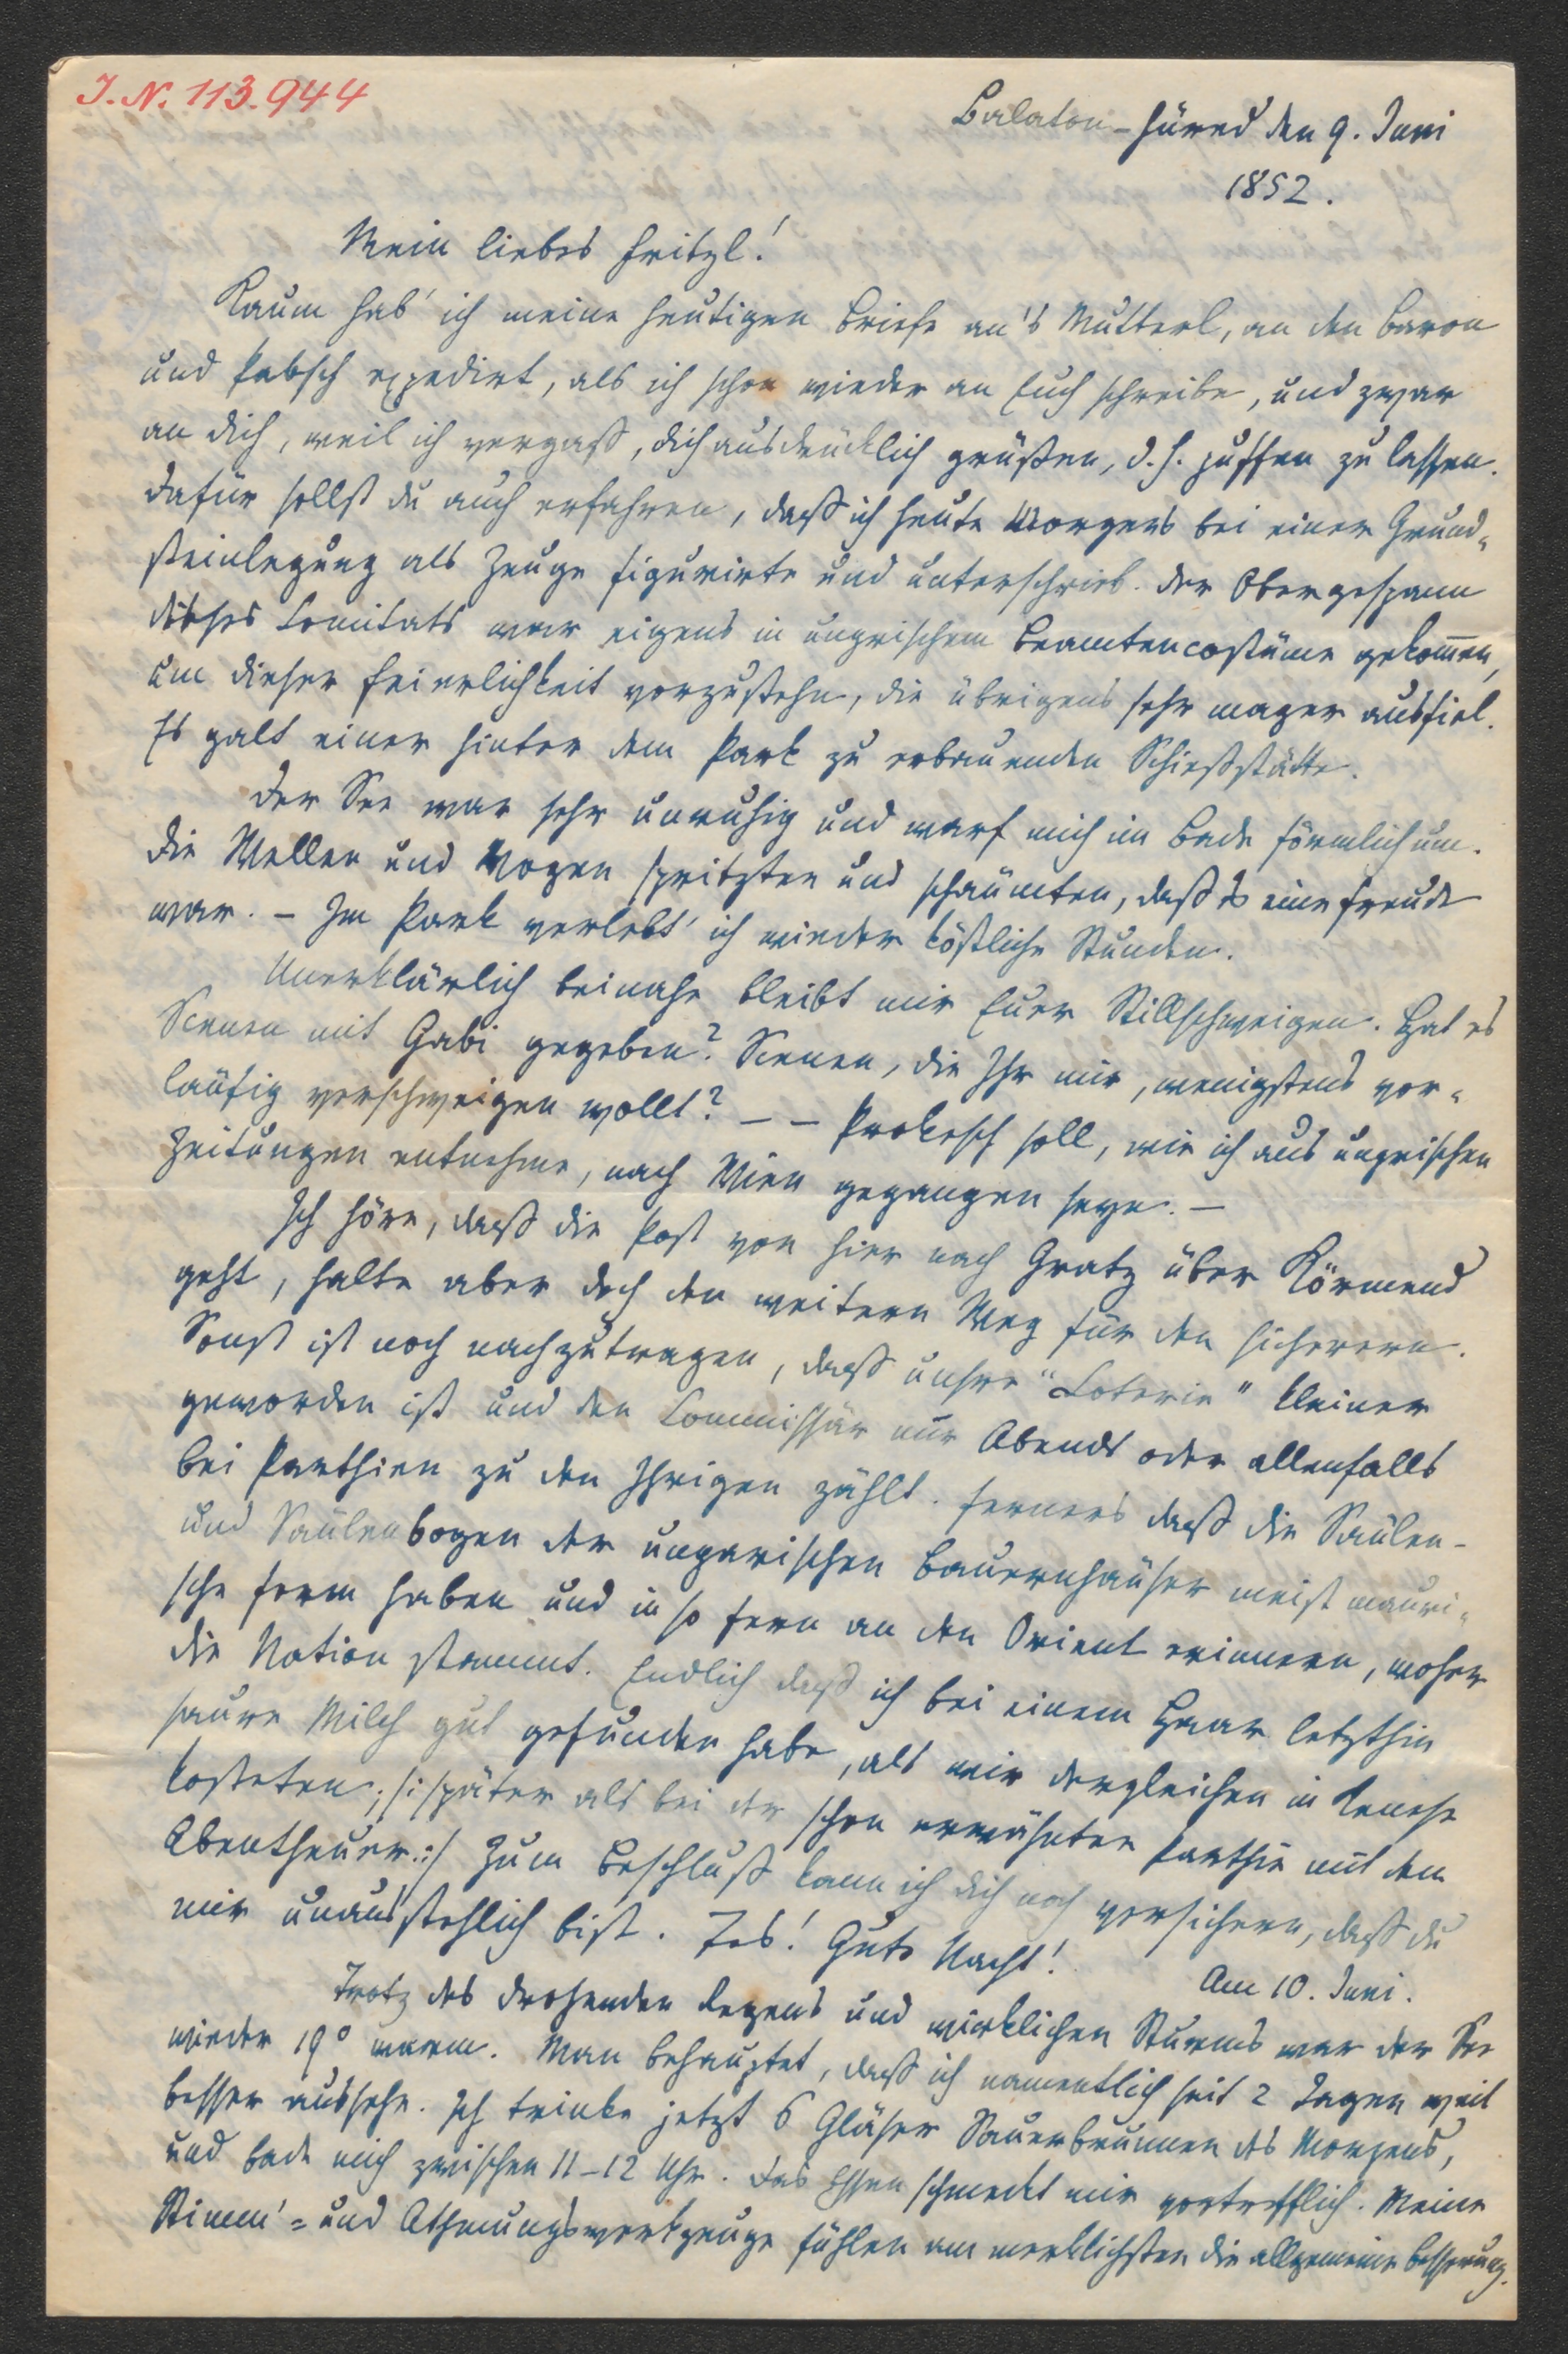 J. N. 113.944
Balaton-Füred den 9. Juni
1852.
Mein liebes Fritzl!
Kaum hab' ich meine heutigen Briefe an's Mutterl, an den Baron
und Pabsch expedirt, als ich schon wieder an Euch schreibe, und zwar
an dich, weil ich vergaß, dich ausdrücklich grüßen, d. h. puffen zu lassen.
Dafür sollst du auch erfahren, daß ich heute Morgens bei einer Grund-
steinlegung als Zeuge figurirte und unterschrieb. Der Obergespann
dieses Comitats war eigens in ungrischem Beamtencostüme gekom̄en,
um dieser Feierlichkeit vorzustehn, die übrigens sehr mager ausfiel.
Es galt einer hinter dem Park zu erbauenden Schießstätte.
Der See war sehr unruhig und warf mich im Bade förmlich um.
Die Wellen und Wogen spritzten und schäumten, daß es eine Freude
war. – Im Park verlebt' ich wieder köstliche Stunden.
Unerklärlich beinahe bleibt mir Euer Stillschweigen. Hat es
Scenen mit Gabi gegeben? Scenen, die Ihr mir, wenigstens vor-
läufig verschweigen wollt? – – Prokesch soll, wie ich aus ungrischen
Zeitungen entnehme, nach Wien gegangen seyn. –
Ich höre, daß die Post von hier nach Gratz über Körmend
geht, halte aber doch den weitern Weg für den sicherern.
Sonst ist noch nachzutragen, daß unsre "Loterie" kleiner
geworden ist und den Commissär nur Abends oder allenfalls
bei Parthien zu den Ihrigen zählt. Ferners daß die Säulen-
und Säulenbogen der ungarischen Bauernhäuser meist mauri-
sche Form haben und in so fern an den Orient erinnern, woher
die Nation stammt. Endlich daß ich bei einem Haar letzthin
saure Milch gut gefunden habe, als wir dergleichen in Kenese
kosteten; /: später als bei der schon erwähnten Parthie mit dem
Abentheuer. :/ Zum Beschluß kann ich dich noch versichern, daß du
mir unausstehlich bist. Zes! Gute Nacht!
Am 10. Juni.
Trotz des drohenden Regens und wirklichen Sturms war der See
wieder 19° warm. Man behauptet, daß ich namentlich seit 2 Tagen weit
besser aussehe. Ich trinke jetzt 6 Gläser Sauerbrunnen des Morgens,
und bade mich zwischen 11–12 Uhr. Das Essen schmeckt mir vortrefflich. Meine
Stimm'- und Athmungswerkzeuge fühlen am merklichsten die allgemeine Besserung.